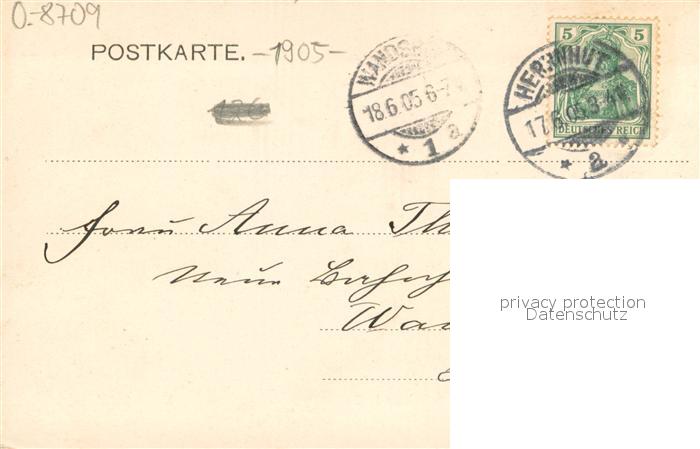 O-8709
POSTKARTE. -1905-
18.6.05 6-7
* 1 a
5 5
HERRNHUT
17.6.05 3-4
DEUTSCHES REICH
* a
Frau Anna Th
Neue Bahnh
Wan
privacy protection
Datenschutz